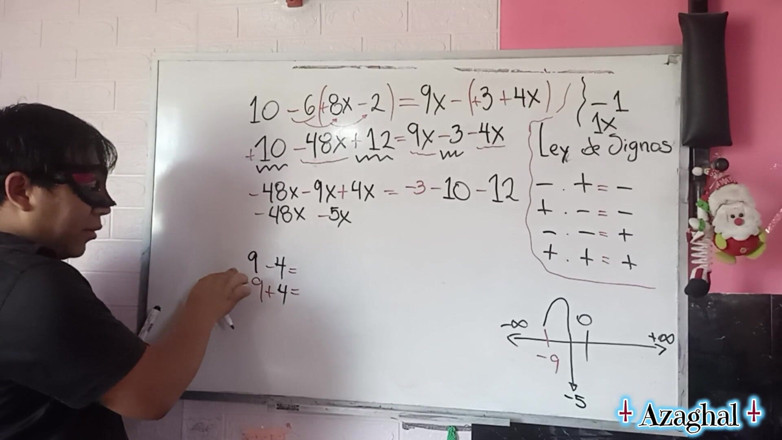 10 -6(+8x-2)=9x-(+3+4x)
+10-48x+12=9x-3-4x
-48x-9x+4x=-3-10-12
-48x -5x
9-4=
-9+4=
}-1
1x
Ley de Signos
- . + = -
+ . - = -
- . - = +
+ . + = +
-∞ 0 +∞
-9
-5
Azaghal